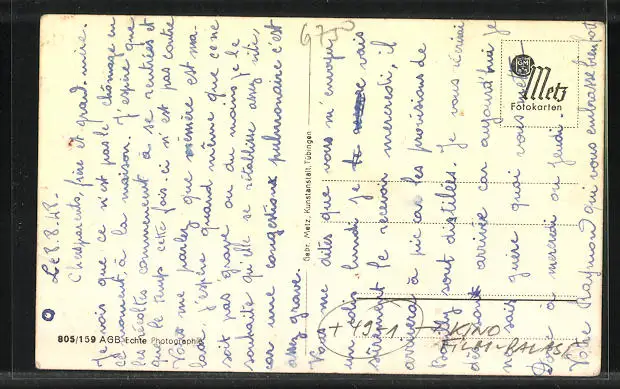 Le 8.8.48.
Chers parents, frère et grand-mère.
Je vois que ce n'est pas le chômage en
ce moment à la maison. J'espère que
les récoltes commencent à se rentrées et
que le temps cette fois-ci n'est pas contre
Vous me parlez que mémère est ma-
lade. J'espère quand même que ce ne
soit pas grave ou du moins je le
souhaite qu'elle se rétablisse assez vite.
car une congestion pulmonaire c'est
assez grave.
Vous me dites que vous m'envoyez
colis lundi je vais
sûrement le recevoir mercredi, il
arrivera à pic car les provisions de
sont distillées. Je vous écrirai
dès arrivée car aujourd'hui je
sais guère quoi vous
à mercredi ou jeudi.
Votre Raymond qui vous embrasse bien fort
6750
GM
Metz
Fotokarten
Gebr. Metz, Kunstanstalt, Tübingen
805/159 AGB Echte Photographie
+ 49-1. - KINO
FILM-PALAST